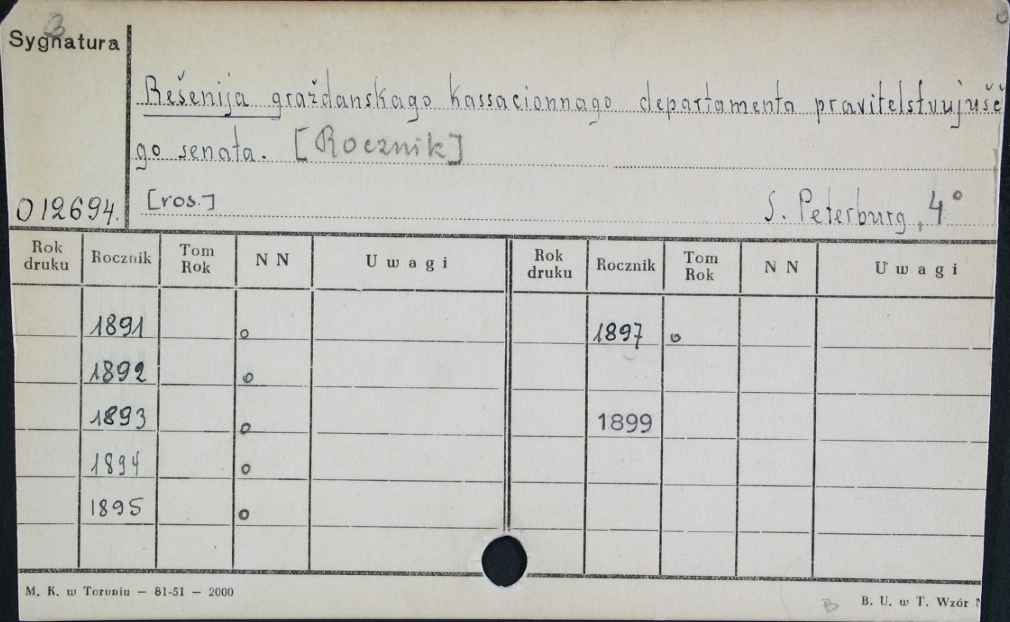 Sygnatura
Rešenija graždanskago kassacionnago departamenta pravitelstvujušč
go senata. [Rocznik]
012694. [ros.] S. Peterburg, 4°
Rok druku Rocznik Tom Rok NN Uwagi Rok druku Rocznik Tom Rok NN Uwagi
1891 o 1897 o
1892 o
1893 o 1899
1894 o
1895 o
M. K. w Toruniu — 81-51 — 2000 B B. U. w T. Wzór